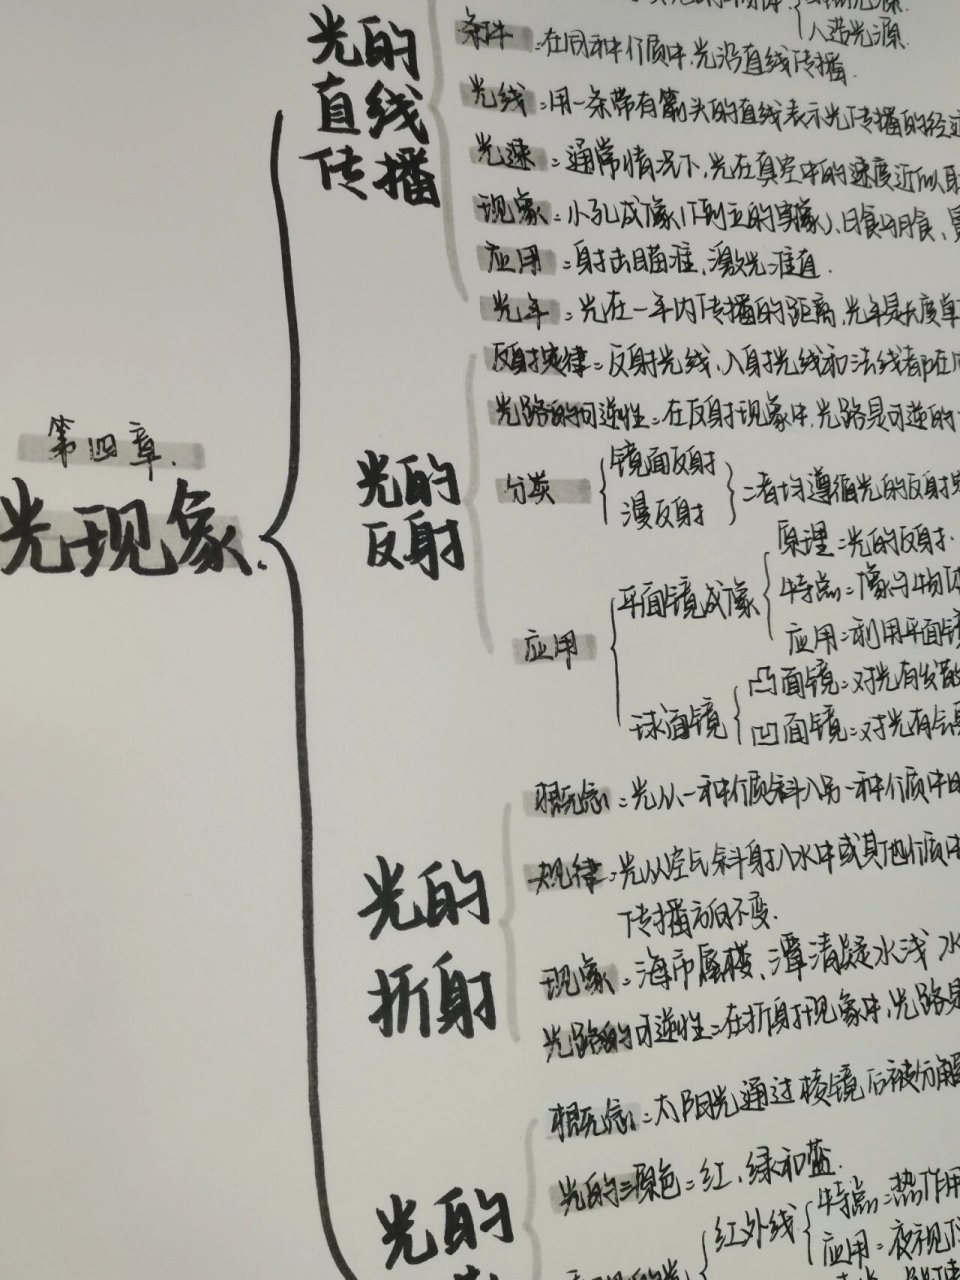 人造光源
条件：在同种介质中，光沿直线传播.
光线：用一条带有箭头的直线表示光传播的经
光速：通常情况下，光在真空中的速度近似取
现象：小孔成像(倒立的实像)、日食月食、
应用：射击瞄准，激光准直.
光年：光在一年内传播的距离，光年是长度单
光的
直线
传播
反射定律：反射光线、入射光线和法线都在
光路的可逆性：在反射现象中，光路是可逆的
分类
镜面反射
漫反射
二者均遵循光的反射定
光的
反射
应用
平面镜成像
原理：光的反射.
特点：像与物体
应用：利用平面镜
球面镜
凸面镜：对光有发散
凹面镜：对光有会聚
第四章.
光现象.
概念：光从一种介质斜入另一种介质中
规律：光从空气斜射入水中或其他介质中
传播方向不变.
现象：海市蜃楼、潭清疑水浅 水
光路的可逆性：在折射现象中，光路是
光的
折射
概念：太阳光通过棱镜后被分解
光的三原色：红、绿和蓝.
红外线
特点：热作用
应用：夜视仪
光的